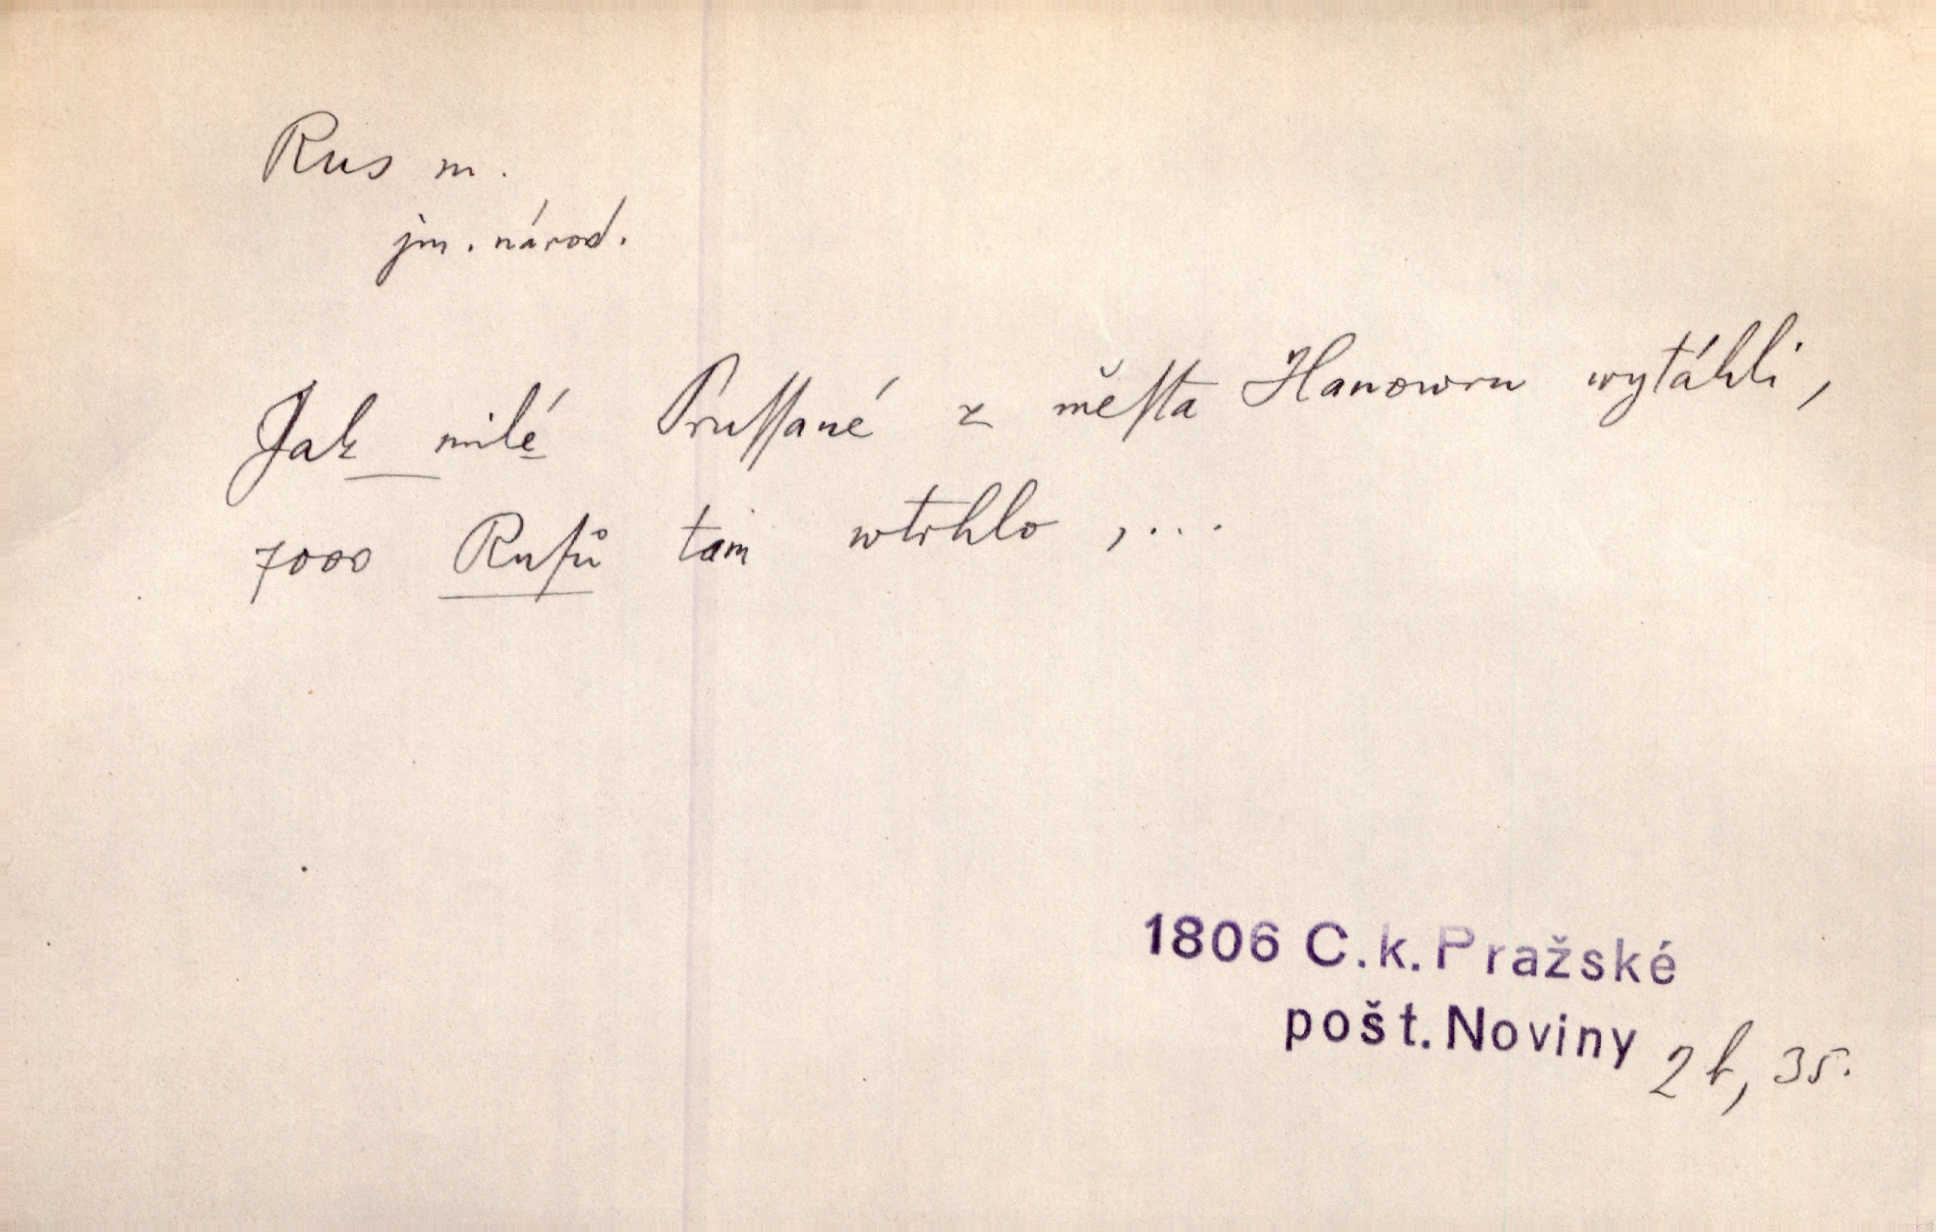 Rus m.
jm. národ.
Jak milé Pruſſané z měſta Hanowru wytáhli,
7000 Ruſů tam wtrhlo, ...
1806 C.k. Pražské
pošt. Noviny 2b, 35.